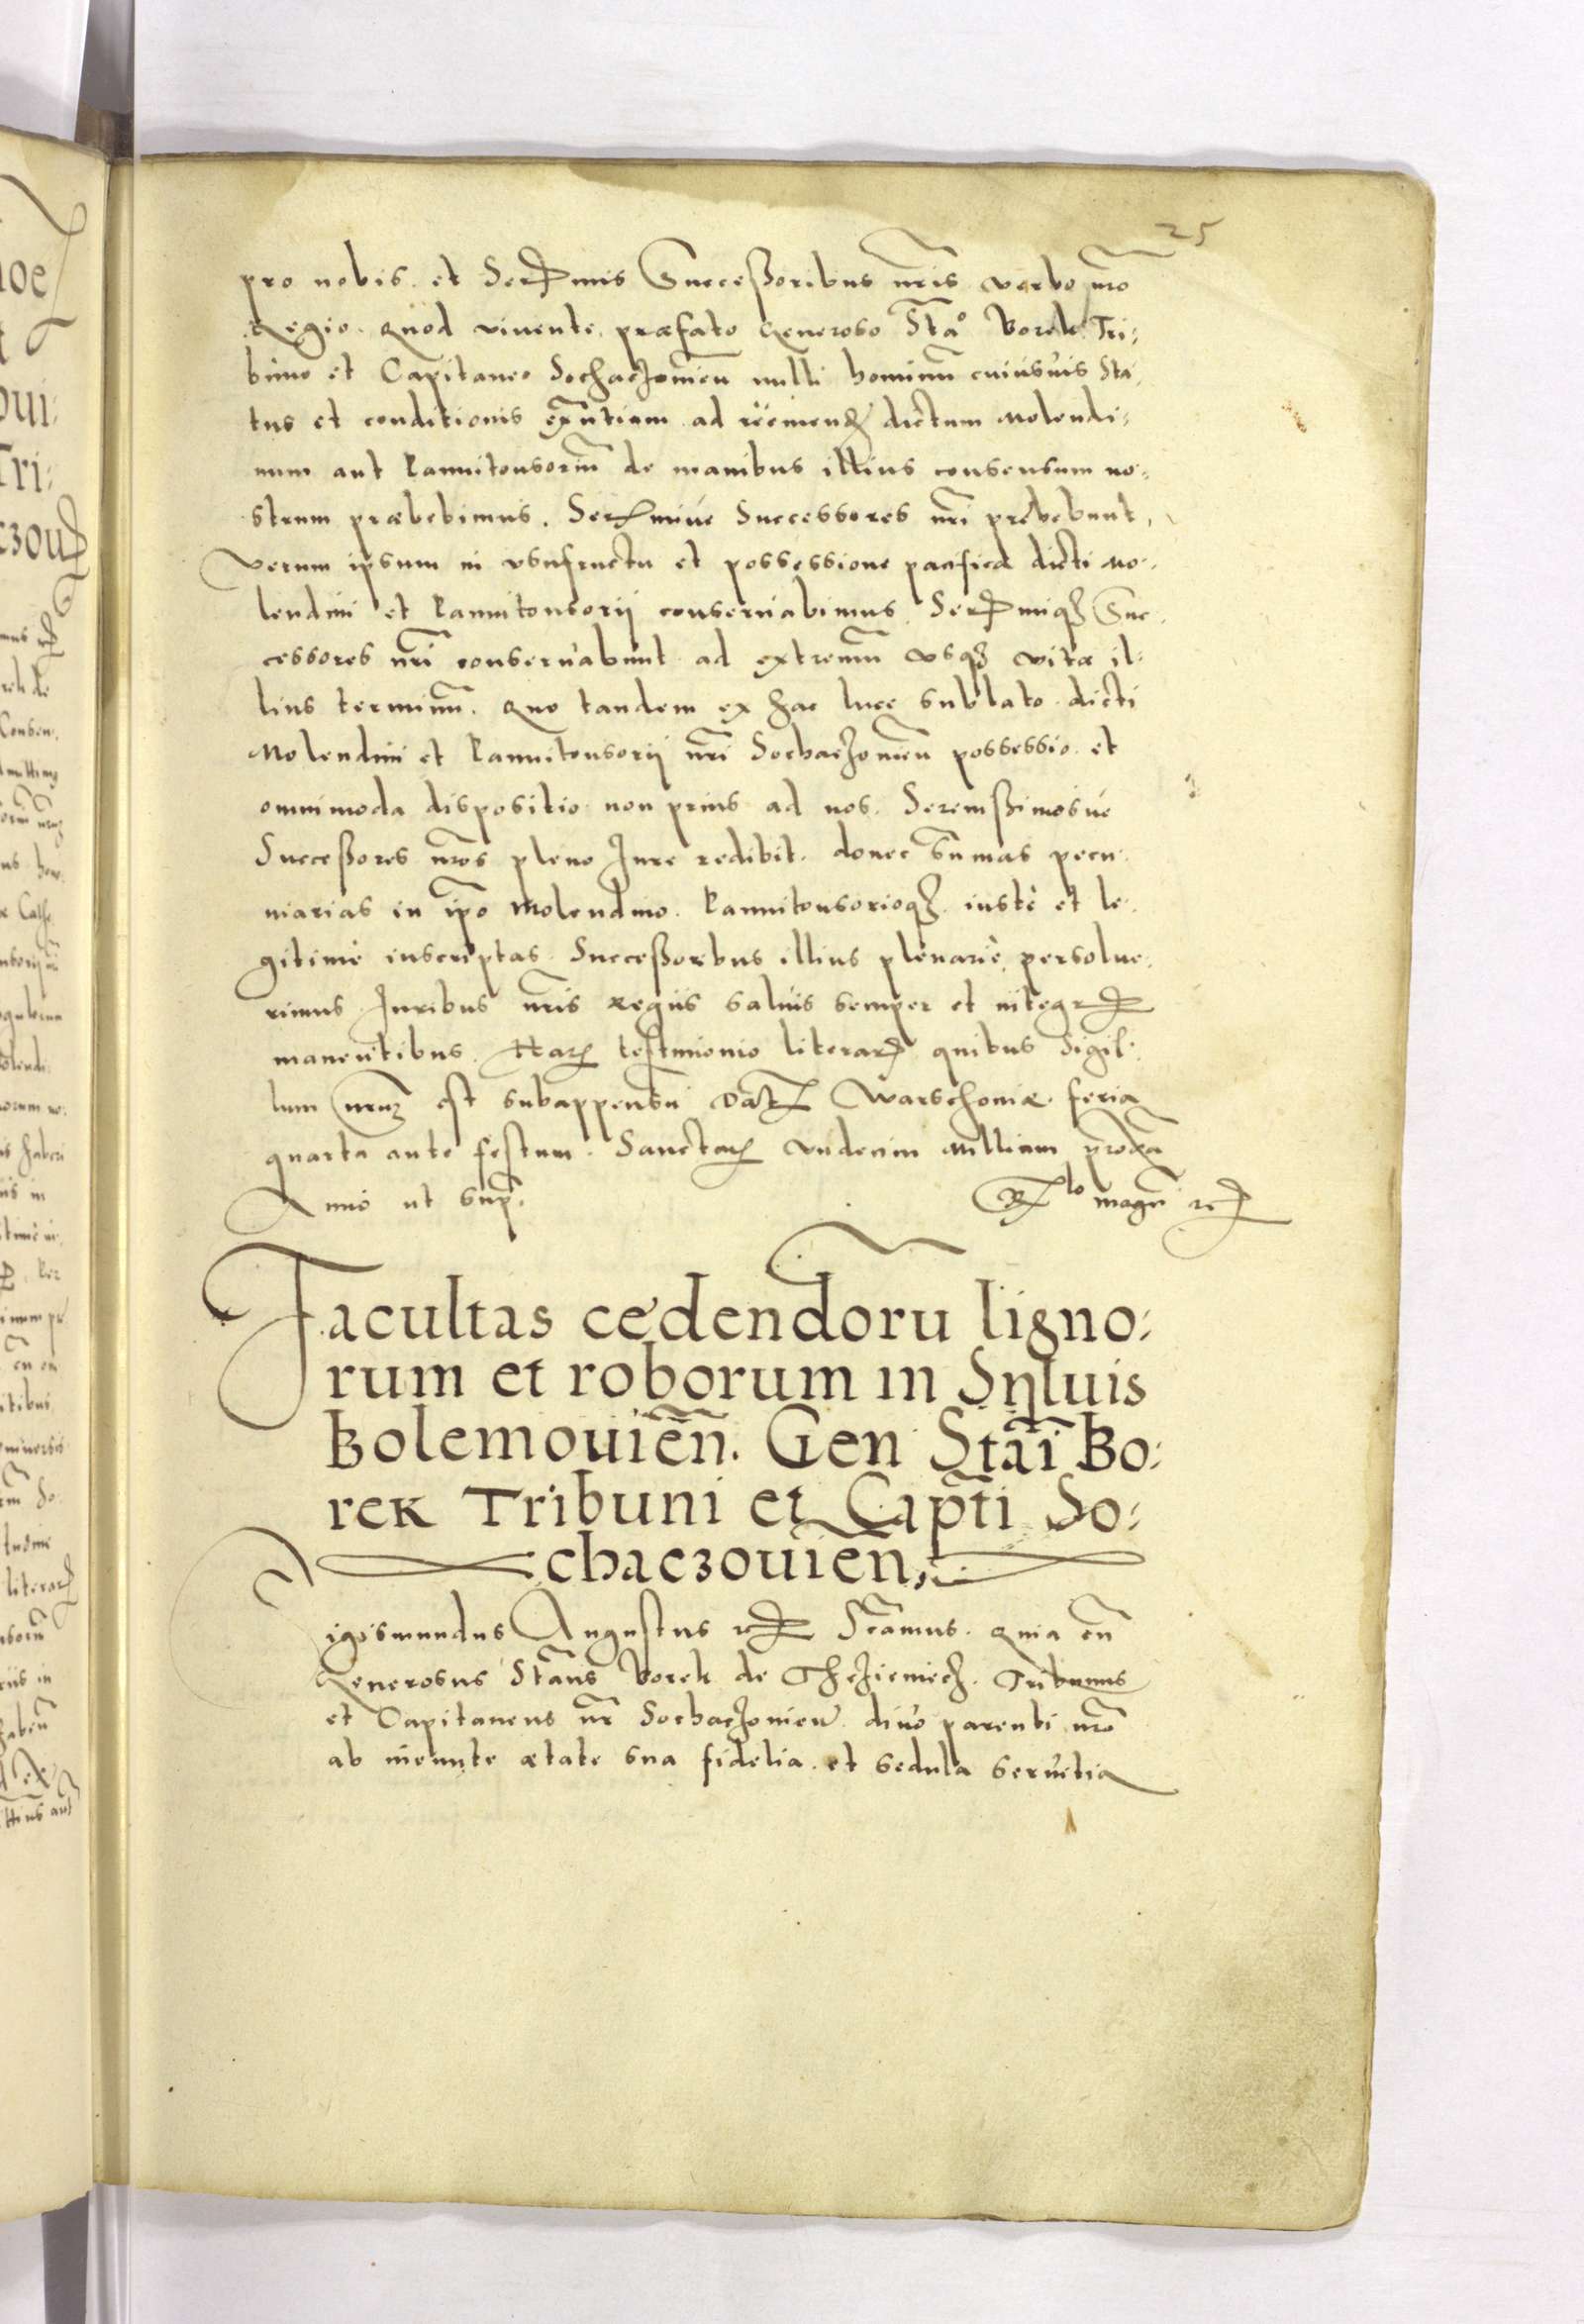 25
pro nobis et Sermis Succeßoribus nr̃is verbo nr̃o
Regio. Quod vivente præfato Generoso Sta͠o Borek Tri:
buno et Capitaneo Sochaczouien̄ nulli hominū cuiusuis Sta,
tus et conditionis existentium ad redimend dictum Molendi:
num aut Pannitonsoriū de manibus illius consensum no:
strum præbebimus. Sermiue Successores nr̃i prebebunt,
Verum ipsum in vsufructu et possessione pacifica dicti Mo:
lendini et Pannitonsorij conseruabimus, Sermiqȝ Suc
cessores nr̃i conseruabunt ad extremū vsqȝ vitæ il:
lius terminū. Quo tandem ex hac luce sublato dicti
Molendini et Pannitonsorij nr̃i Sochaczouien̄ possessio et
omnimoda dispositio non prius ad nos. Serenißimosue
Succeßores nr̃os pleno Iure redibit. donec sum̄as pecu:
niarias in ip̃o Molendino. Pannitonsorioqȝ. iustè et le:
gitimè inscriptas Succeßoribus illius plenariè persolue:
rimus Iuribus nr̃is Regiis saluis semper et integr
manentibus. Har testimonio literar quibus Sigil:
lum nr̃uȝ est subappensū Dat Warschouiæ. feria
quarta ante festum. Sanctar vndecim Millium
Anno ut sup̃.
Rlo magr̃i
Facultas cedendorū ligno:
rum et roborum in Sylvis
Bolemouien̄. Gen Stai Bo:
rek Tribuni et Capti So:
chaczouien̄,
igismundus Augustus Sc̃amus. Quia cū
Generosus Stan̄s Borek de Tribunus
et Capitaneus nr̃ Sochaczouien̄ diuo parenti nr̃o
ab ineunte ætate sua fidelia et sedula seruitia